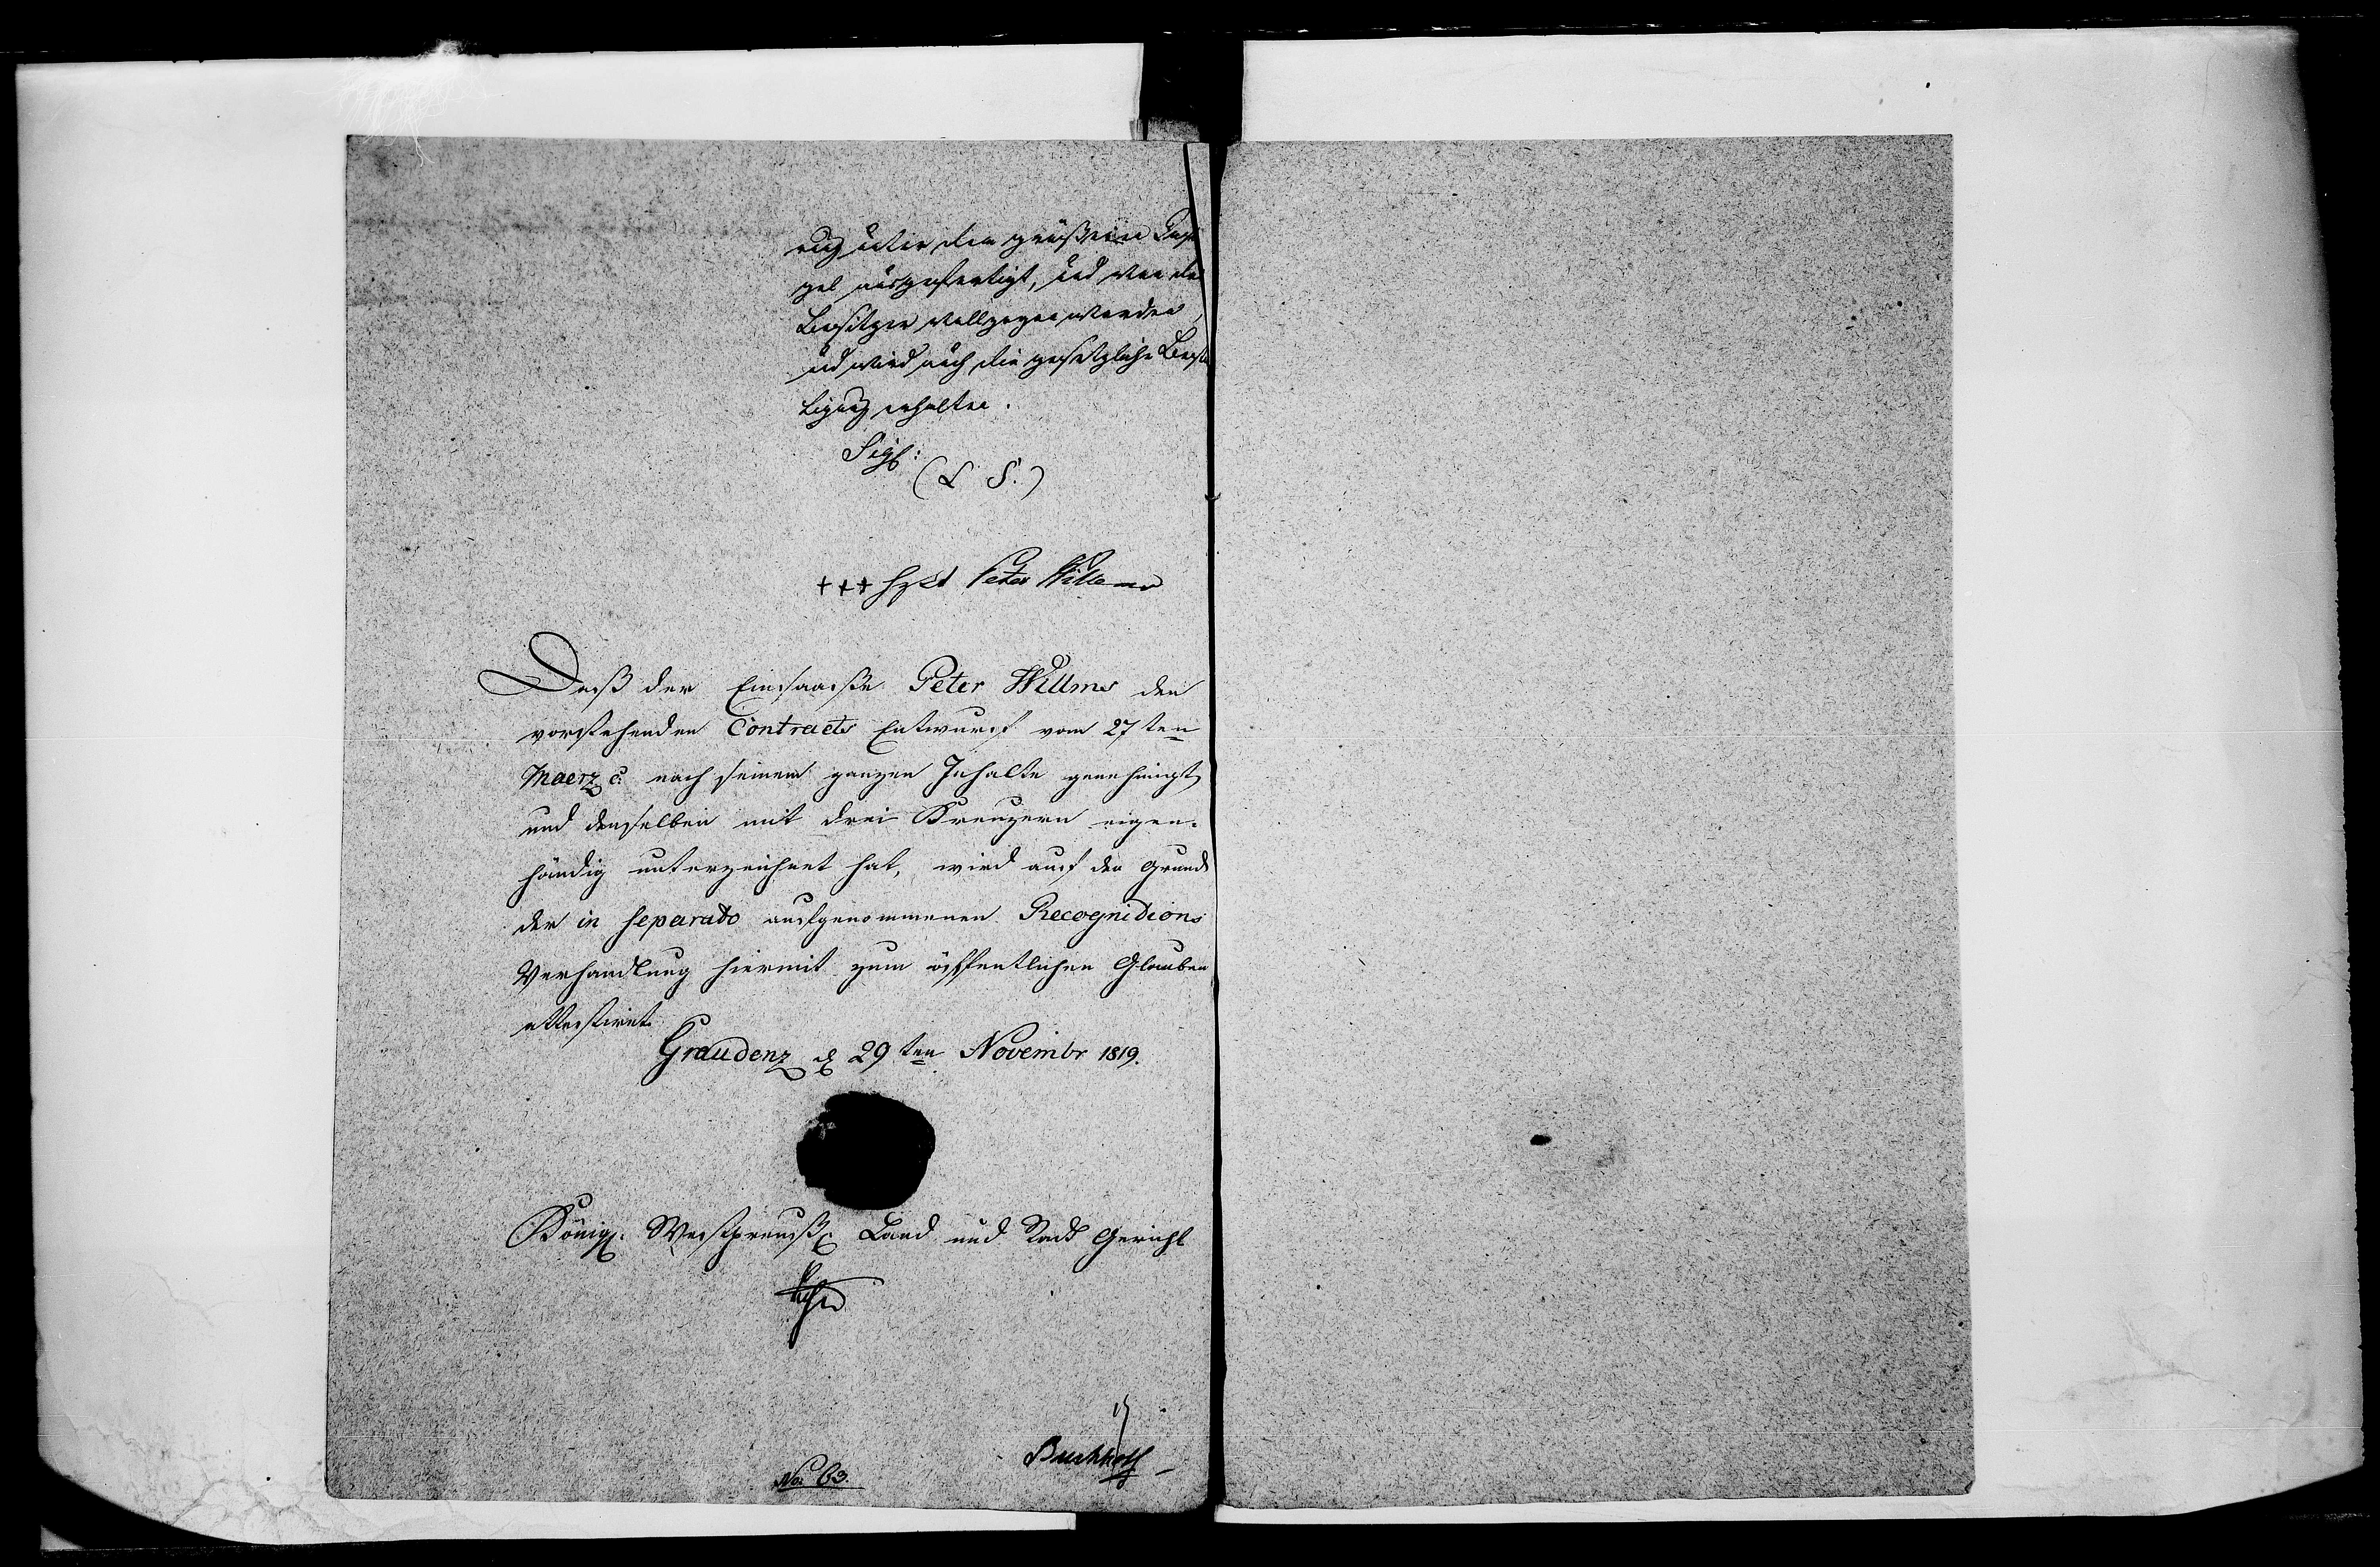 ung unter dem größeren Insie
gel ausgefertigt, und von de
Besitzer vollzogen worden,
und wird auch die gesetzliche Bestä
tigung erhalten.
Sigl:
(L S.)
+++ Peter Willems
Daß der Einsaasse Peter Willms den
vorstehenden Contracts Entwurf vom 27 ten
Maerz c: nach seinem ganzen Inhalte genehmigt,
und denselben mit drei Kreuzern eigen-
händig unterzeichnet hat, wird auf den Grund
der in separato aufgenommenen Recognitions
Verhandlung hiermit zum öffentlichen Glauben
attestiret.
Graudenz d 29 ten Novembr 1819.
Königl. Westpreuß. Land und Stadt Gericht
Buchholz
No 63.